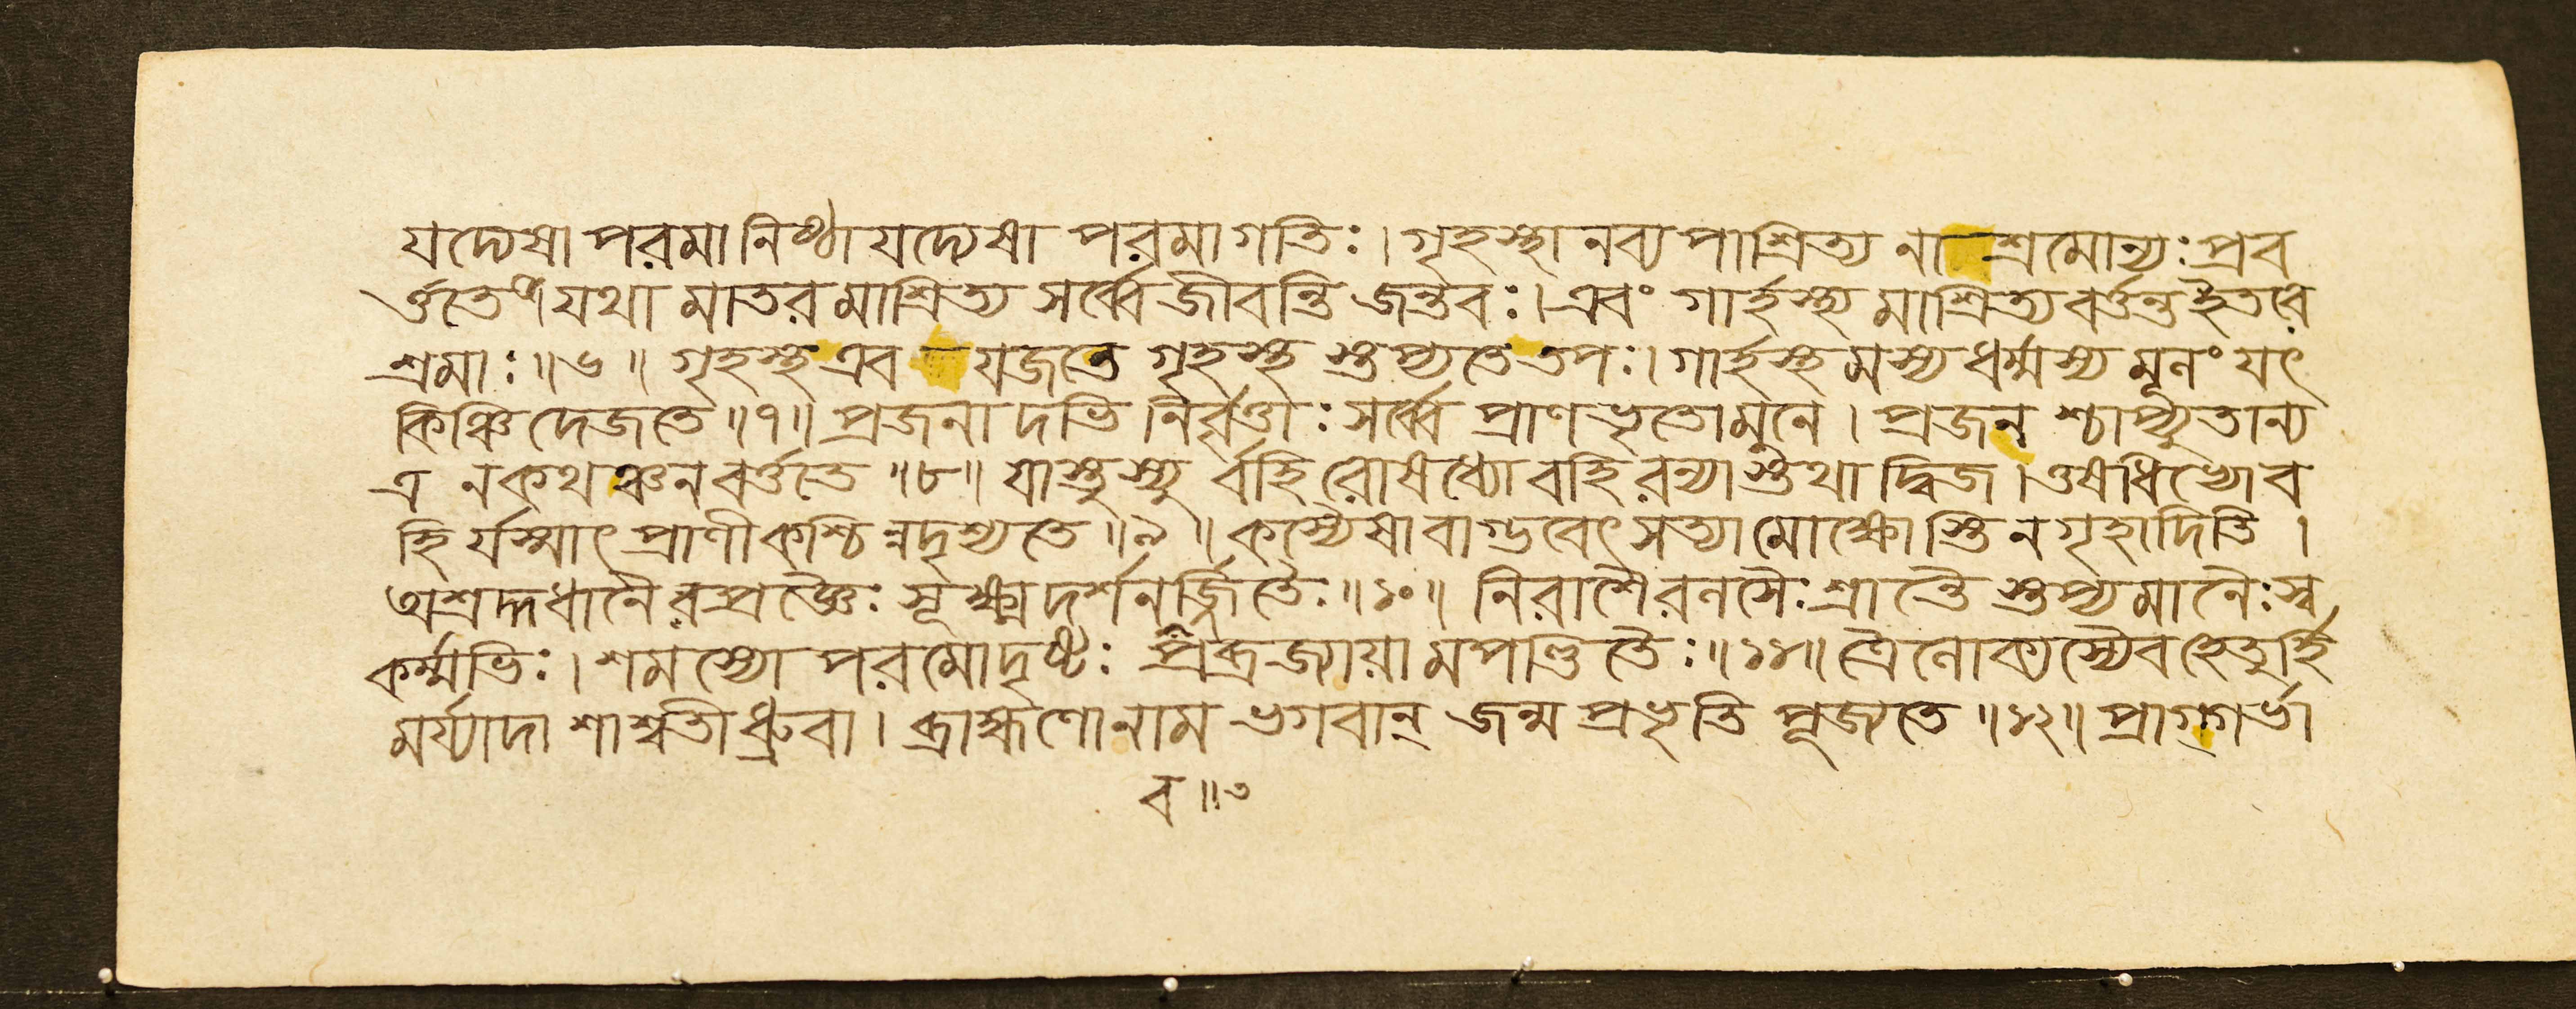 যদ্যেষা পরমা নিষ্ঠা যদ্যেষা পরমা গতিঃ। গৃহস্থানব্যপাশ্রিত্য নাশ্রমোন্যঃ প্রব
র্ত্ততে ৫ যথা মাতরমাশ্রিত্য সর্ব্বে জীবন্তি জন্তবঃ। এবং গার্হস্থ্যমাশ্রিত্য বর্ত্তন্ত ইতরে
শ্রমাঃ॥৬॥ গৃহস্থ এব যজতে গৃহস্থ স্তপ্যতে তপঃ। গার্হস্থমস্য ধর্ম্মস্য মূলং যৎ
কিঞ্চিদেজতে॥৭॥ প্রজনাদভিনির্বৃত্তাঃ সর্ব্বে প্রাণভৃতো মুনে। প্রজনশ্চাপ্যুতান্য
ত্র ন কথঞ্চন বর্ত্ততে॥৮॥ যাস্তু স্যু র্বহি রোষধ্যো বহিরন্যা স্তথা দ্বিজ। ওষধিভ্যো ব
হির্যস্মাৎ প্রাণী কশ্চিন্নদৃশ্যতে॥৯॥ কস্যৈষা বাগ্ভবেৎ সত্যা মোক্ষোস্তি ন গৃহাদিতি।
অশ্রদ্দধানৈরপ্রজ্ঞৈঃ সূক্ষ্মদর্শনর্জ্জিতৈঃ॥১০॥ নিরাশৈরলসৈঃ শ্রান্তৈ স্তপ্যমানৈঃ স্ব
কর্ম্মভিঃ। শমস্যো পরমো দৃষ্টঃ প্রব্রজ্যায়ামপণ্ডিতৈঃ॥১১॥ ত্রৈলোক্যস্যৈব হেতুর্হি
মর্য্যাদা শাশ্বতী ধ্রুবা। ব্রাহ্মণো নাম ভগবান্ জন্ম প্রভৃতি পূজ্যতে॥১২॥ প্রাগ্গর্ভা
ব॥৩